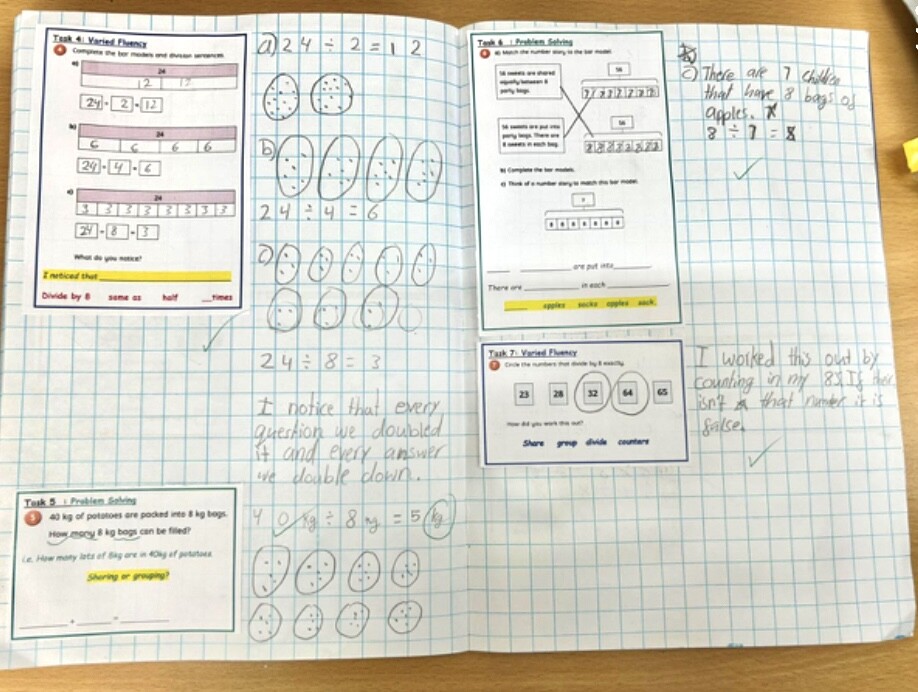 Task 4: Varied Fluency
4 Complete the bar models and division sentences.
a)
24
12 12
24 ÷ 2 = 12
b)
24
6 6 6 6
24 ÷ 4 = 6
c)
24
3 3 3 3 3 3 3 3
24 ÷ 8 = 3
What do you notice?
I noticed that
Divide by 8 same as half __times
a) 24 ÷ 2 = 12
b)
24 ÷ 4 = 6
c)
24 ÷ 8 = 3
I notice that every
question we doubled
it and every answer
we double down.
Task 5 : Problem Solving
5 40 kg of potatoes are packed into 8 kg bags.
How many 8 kg bags can be filled?
i.e. How many lots of 8kg are in 40kg of potatoes
Sharing or grouping?
40 kg ÷ 8 kg = 5 kg
Task 6 : Problem Solving
6 a) Match the number story to the bar model.
56 sweets are shared
equally between 8
party bags.
56
7 7 7 7 7 7 7 7
56 sweets are put into
party bags. There are
8 sweets in each bag.
56
8 8 8 8 8 8 8
b) Complete the bar models.
c) Think of a number story to match this bar model.
?
8 8 8 8 8 8 8
____ ________ are put into________
There are ________ in each ________
____ apples sacks apples sack.
c) There are 7 children
that have 8 bags of
apples.
8 ÷ 7 = 8
Task 7: Varied Fluency
7 Circle the numbers that divide by 8 exactly.
23 28 32 64 65
How did you work this out?
Share group divide counters
I worked this out by
counting in my 8s, If ther
isn't that number it is
false.